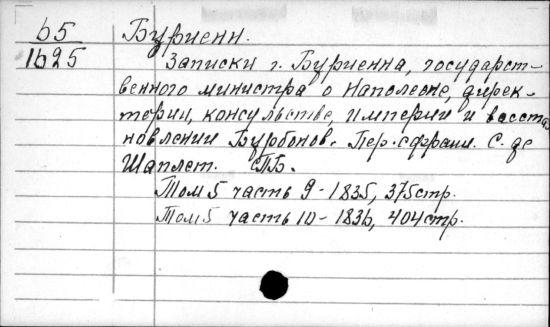 65 Буриенн.
1625 Записки г. Буриенна, государст-
венного министра о Наполеоне, дирек-
тории, консульстве, империи и восста
новлении Бурбонов. Пер. с франц. С. де
Шаплет. СПБ.
Том 5 часть 9 - 1835, 375 стр.
Том 5 часть 10 - 1836, 404 стр.